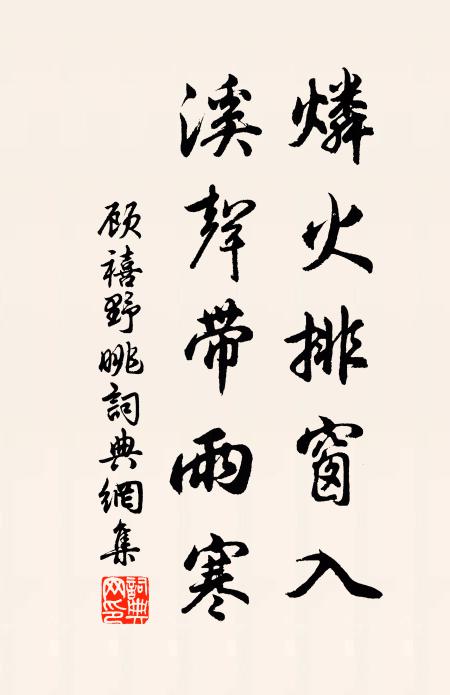 燐火排窗入
溪聲帶雨寒
顾禧野眺詞典網集
詞典网印